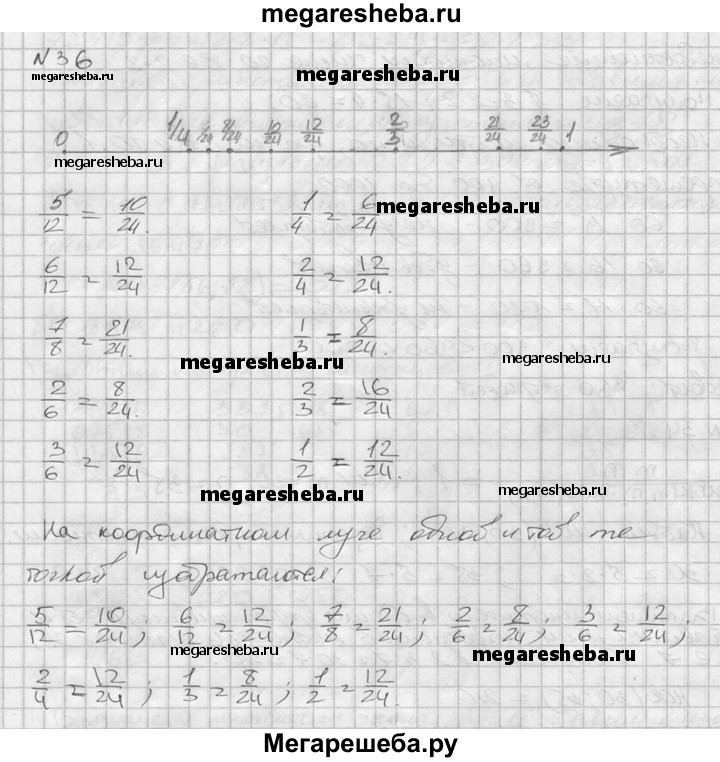 megaresheba.ru
N 36
megaresheba.ru megaresheba.ru
0 1/4 /24 8/24 10/24 12/24 2/3 21/24 23/24 1
megaresheba.ru
5/12 = 10/24. 1/4 = 6/24 megaresheba.ru
6/12 = 12/24 2/4 = 12/24.
7/8 = 21/24. 1/3 = 8/24.
megaresheba.ru megaresheba.ru
2/6 = 8/24. 2/3 = 16/24
3/6 = 12/24 1/2 = 12/24.
megaresheba.ru megaresheba.ru
На координатном луче одной и той же
точкой изображаются:
5/12 = 10/24; 6/12 = 12/24; 7/8 = 21/24; 2/6 = 8/24; 3/6 = 12/24;
megaresheba.ru megaresheba.ru
2/4 = 12/24; 1/3 = 8/24; 1/2 = 12/24.
Мегарешеба.ру